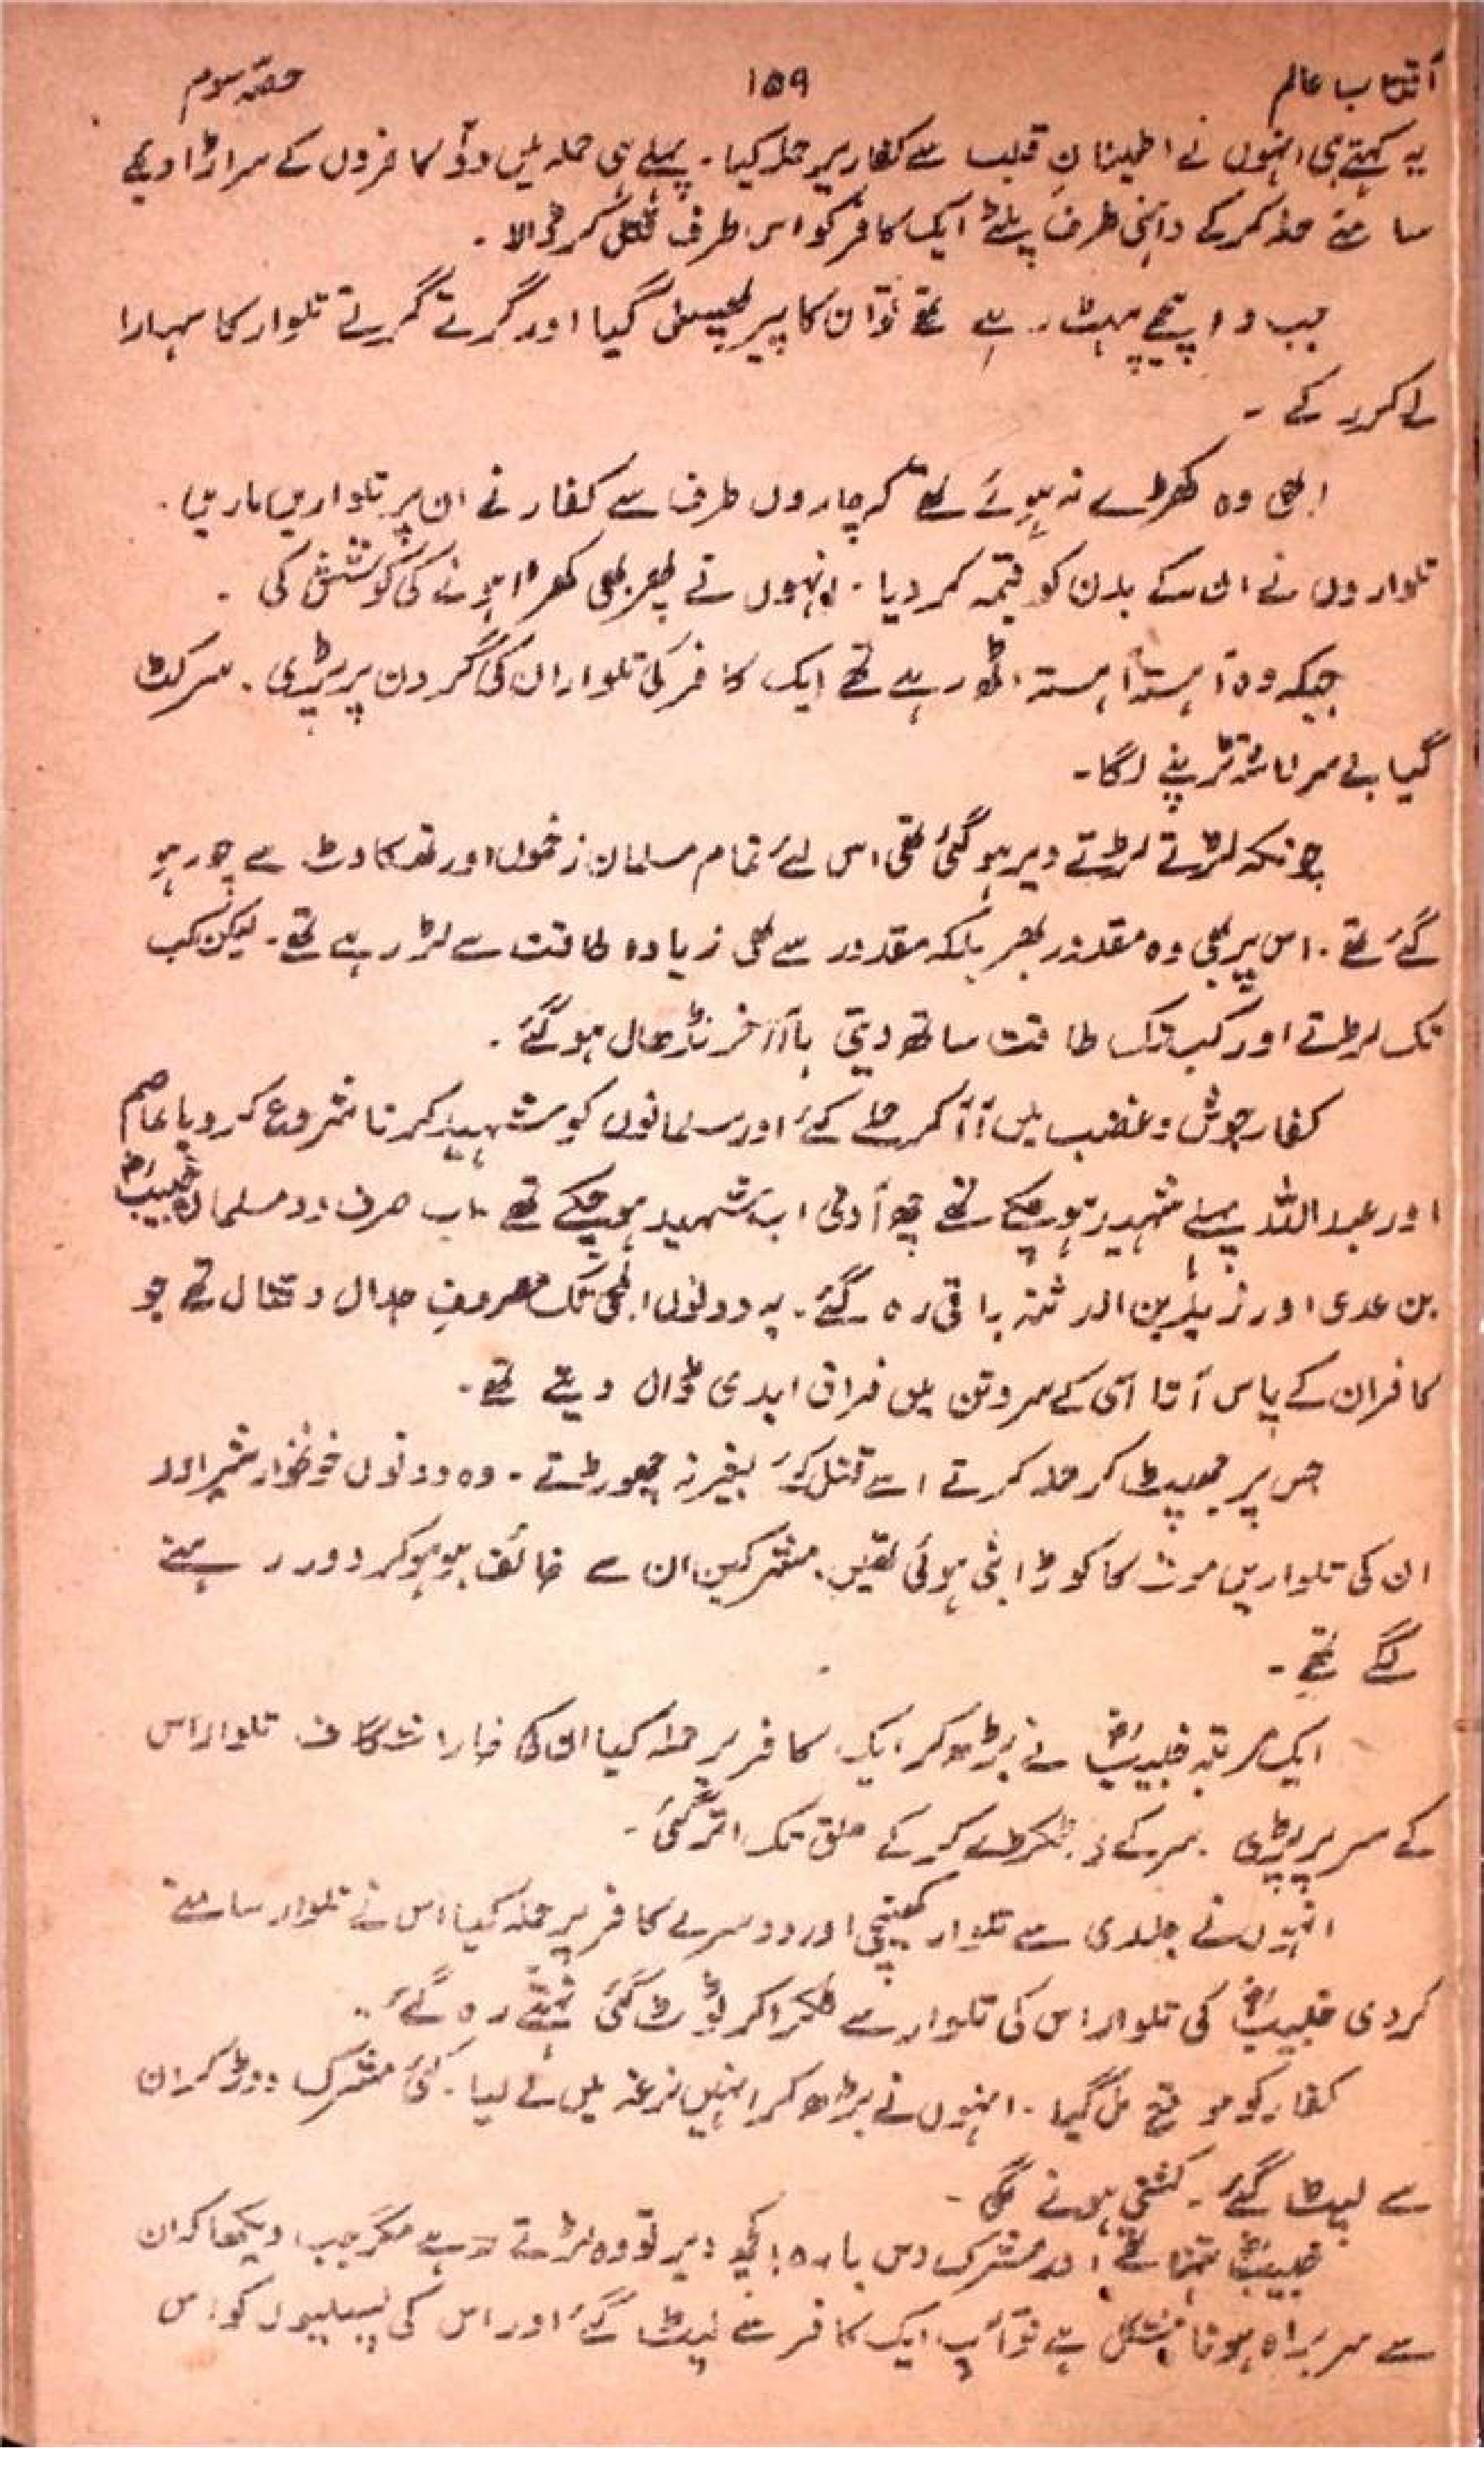 آفتاب عالم ۱۵۹ حصہ سوم
یہ کہتے ہی انہوں نے اطمینان قلب سے کفار پر حملہ کیا۔ پہلے ہی حملہ میں دو کافروں کے سر اڑا دیئے
سامنے حملہ کرکے داہنی طرف پلٹے ایک کافر کو اس طرف قتل کر ڈالا۔
جب وہ پیچھے ہٹ رہے تھے تو ان کا پیر پھسل گیا اور گرتے گرتے تلوار کا سہارا
لے کر رکے۔
ابھی وہ کھڑے نہ ہوئے تھے کہ چاروں طرف سے کفار نے ان پر تلواریں ماریں۔
تلواروں نے ان کے بدن کو قیمہ کر دیا۔ انہوں نے پھر بھی کھڑا ہونے کی کوشش کی۔
جبکہ وہ آہستہ آہستہ اٹھ رہے تھے ایک کافر کی تلوار ان کی گردن پر پڑی۔ سر کٹ
گیا بے سر لاشہ تڑپنے لگا۔
چونکہ لڑتے لڑتے دیر ہو گئی تھی اس لئے تمام مسلمان زخموں اور تھکاوٹ سے چور ہو
گئے تھے۔ اس پر بھی وہ مقدور بھر بلکہ مقدور سے بھی زیادہ طاقت سے لڑ رہے تھے۔ لیکن کب
تک لڑتے اور کب تک طاقت ساتھ دیتی بالآخر نڈھال ہو گئے۔
کفار جوش و غضب میں آ آ کر حملے کئے اور مسلمانوں کو شہید کرنا شروع کر دیا عاصمؓ
اور عبداللہ پہلے شہید ہو چکے تھے چھ آدمی اب شہید ہو چکے تھے اب صرف دو مسلمان خبیبؓ
بن عدی اور زید بن الدثنہ باقی رہ گئے۔ یہ دونوں ابھی تک مصروف جدال و قتال تھے جو
کافر ان کے پاس آتا اسی کے سر و تن میں فراق ابدی ڈال دیتے تھے۔
جس پر جھپٹ کر حملہ کرتے اسے قتل کئے بغیر نہ چھوڑتے۔ وہ دونوں خونخوار شیر اور
ان کی تلواریں موت کا کوڑا بنی ہوئی تھیں۔ مشرکین ان سے خائف ہو ہو کر دور رہنے
لگے تھے۔
ایک مرتبہ خبیبؓ نے بڑھ کر ایک کافر پر حملہ کیا ان کی خارا شگاف تلوار اس
کے سر پر پڑی۔ سر کے دو ٹکڑے کر کے حلق تک اتر گئی۔
انہوں نے جلدی سے تلوار کھینچی اور دوسرے کافر پر حملہ کیا اس نے تلوار سامنے
کر دی خبیبؓ کی تلوار اس کی تلوار سے ٹکرا کر ٹوٹ گئی نہتے رہ گئے۔
کفار کو موقع مل گیا۔ انہوں نے بڑھ کر انہیں نرغہ میں لے لیا۔ کئی مشرک دوڑ کر ان
سے لپٹ گئے۔ کشتی ہونے لگی۔
خبیبؓ تنہا تھے اور مشرک دس بارہ کچھ دیر تو وہ لڑتے رہے مگر جب دیکھا کہ ان
سے سربراہ ہونا مشکل ہے تو آپ ایک کافر سے لپٹ گئے اور اس کی پسلیوں کو اس